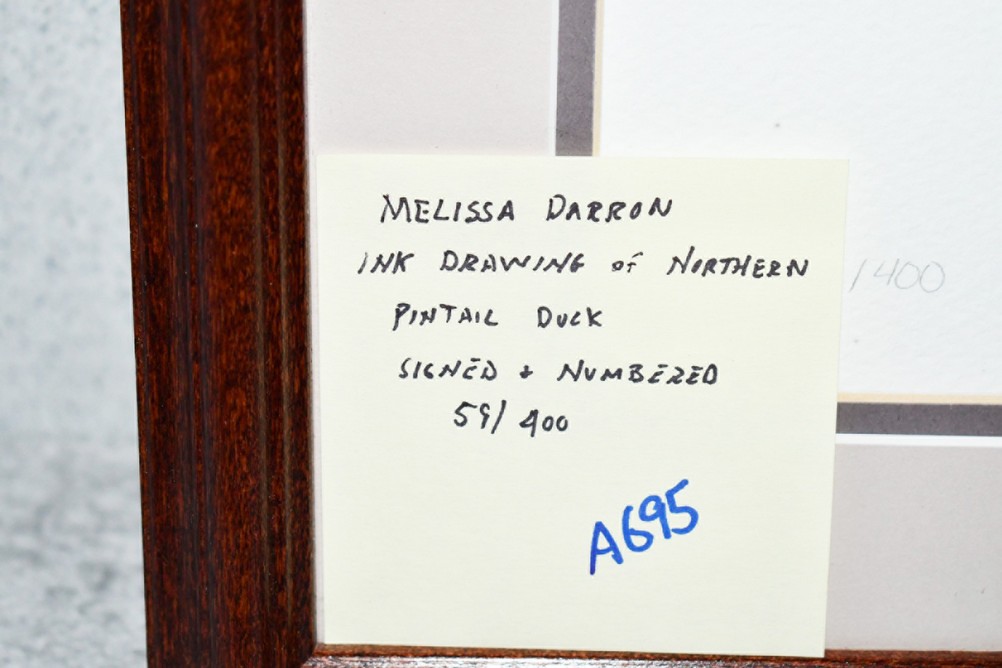 MELISSA DARRON
INK DRAWING of NORTHERN
PINTAIL DUCK
SIGNED + NUMBERED
59/400
A695
/400